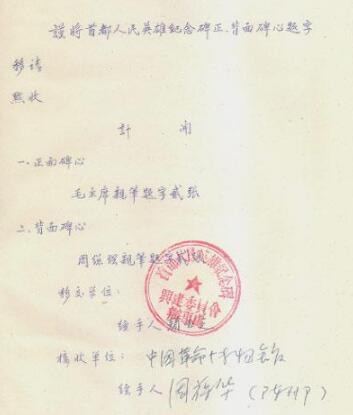 謹將首都人民英雄紀念碑正、背面碑心題字
移請
點收
計開
一、正面碑心
毛主席親筆題字貳張
二、背面碑心
周總理親筆題字
移交單位：
首都人民英雄紀念碑
興建委員會
辦事處
經手人
接收單位： 中国革命
经手人